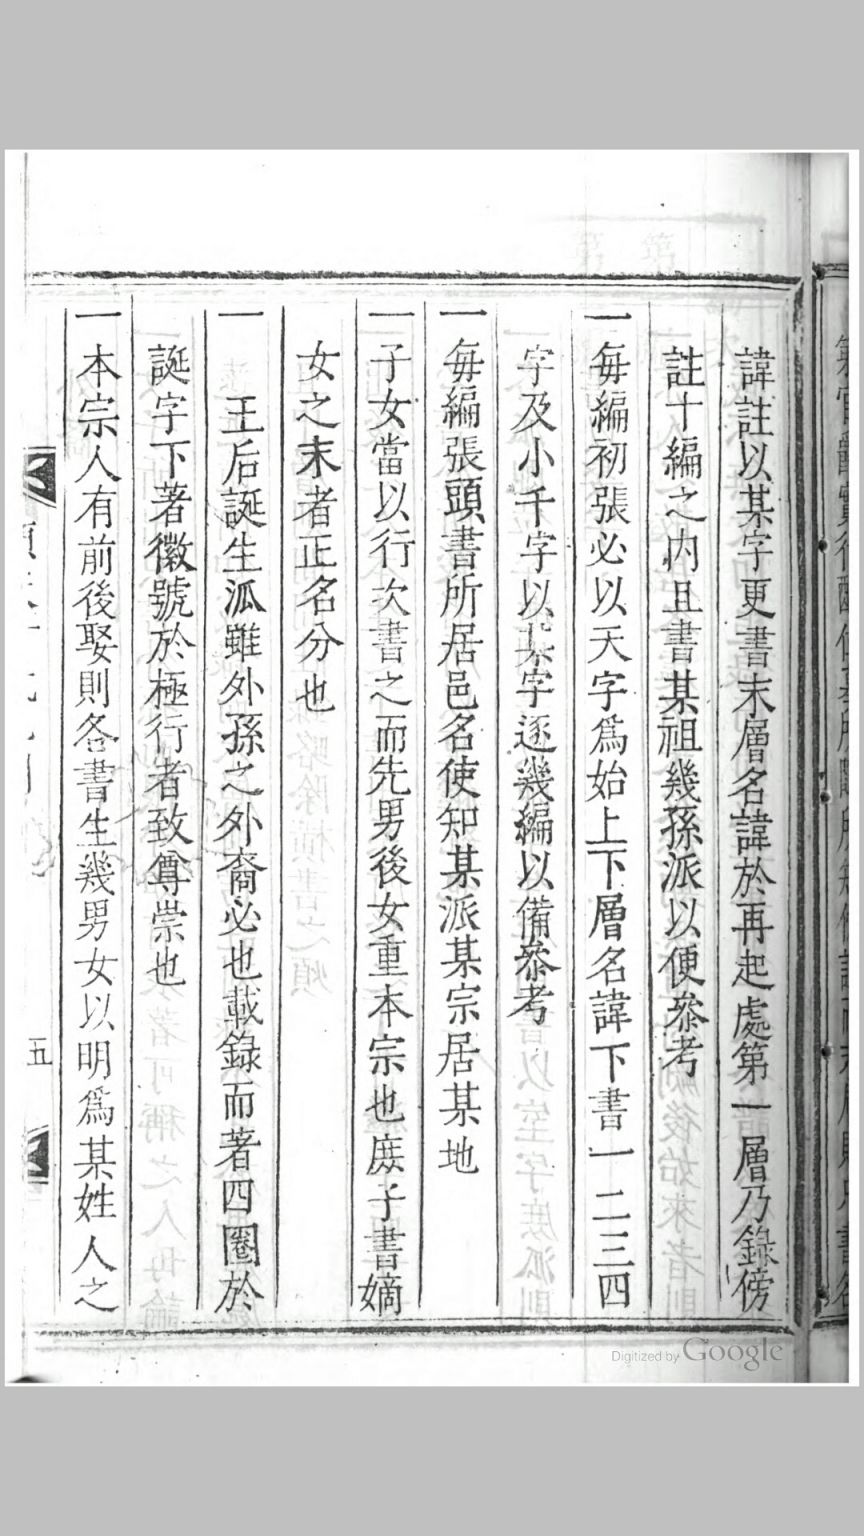 諱註以某字更書末層名諱於再起處第一層乃錄傍
註十編之內且書某祖幾孫派以便叅考
一每編初張必以天字爲始上下層名諱下書一二三四
字及小千字以某字逐幾編以備叅考
一每編張頭書所居邑名使知某派某宗居某地
一子女當以行次書之而先男後女重本宗也庶子書嫡
女之末者正名分也
一王后誕生派雖外孫之外裔必也載錄而著四圈於
誕字下著徽號於極行者致尊崇也
一本宗人有前後娶則各書生幾男女以明爲某姓人之
五
Digitized by Google